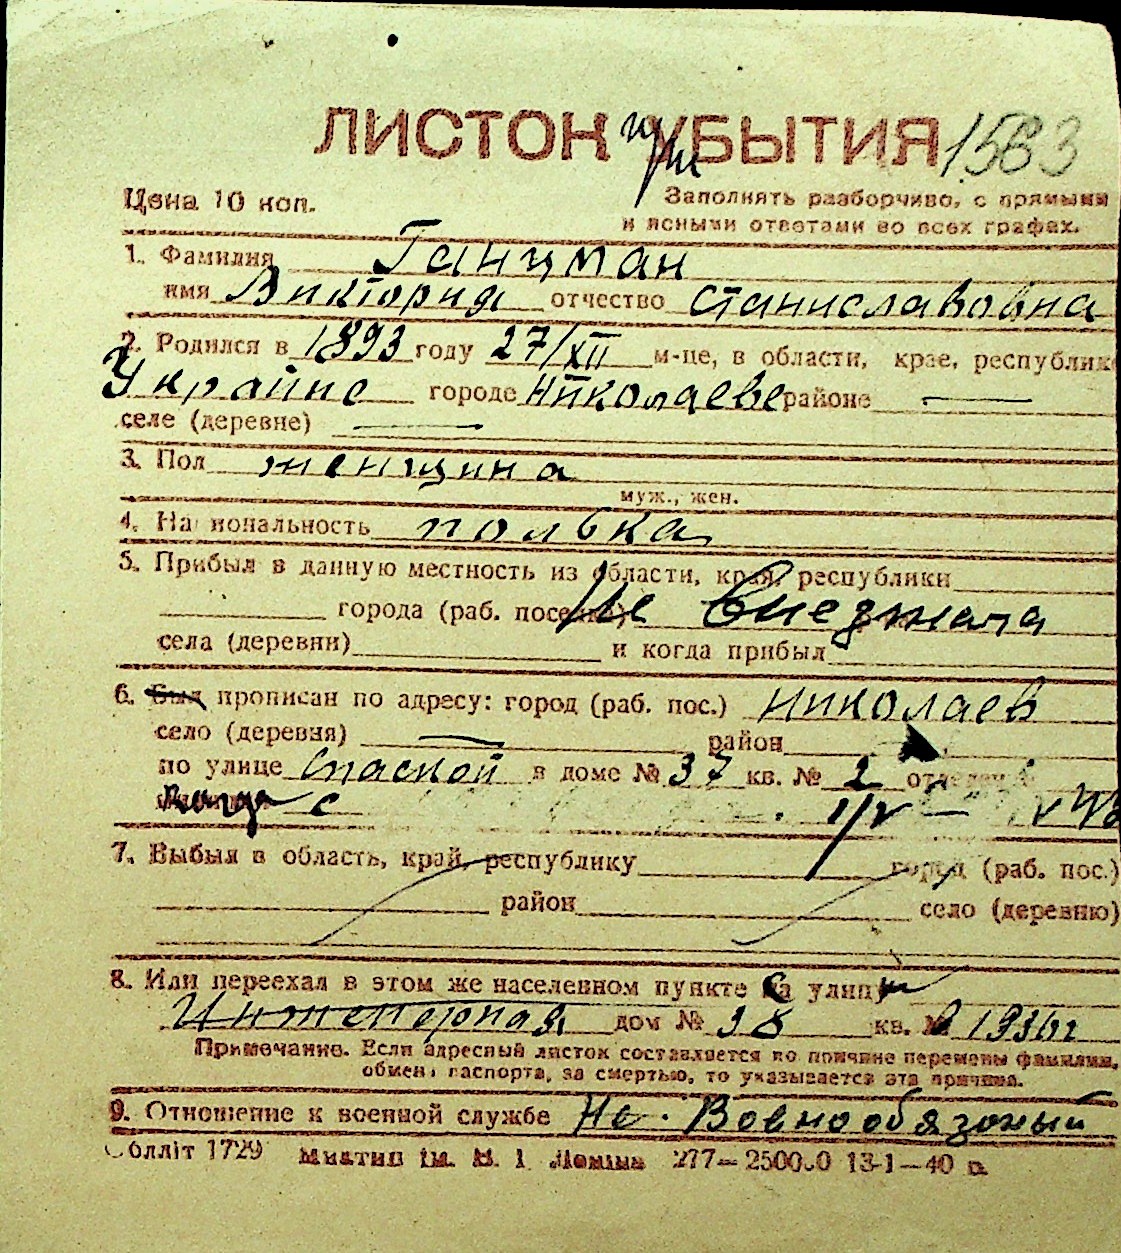 ЛИСТОК при УБЫТИЯ 1583
Цена 10 коп. Заполнять разборчиво, с прямыми
и ясными ответами во всех графах.
1. Фамилия Ганцман
имя Виктория отчество Станиславовна
2. Родился в 1893 году 27/XII м-це, в области, крае, республике
Украйне городе Николаеве районе —
селе (деревне) —
3. Пол женщина
муж., жен.
4. На иональность полька
5. Прибыл в данную местность из области, края, республики
города (раб. поселка) Не виезжала
села (деревни) и когда прибыл
6. Был прописан по адресу: город (раб. пос.) Николаев
село (деревня) — район
по улице Спаской в доме № 37 кв. № 2
когда с
7. Выбыл в область, край, республику город (раб. пос.)
район село (деревню)
8. Или переехал в этом же населенном пункте с улицы
Инженерная дом № 38 кв. № 1936г
Примечание. Если адресный листок составляется по причине перемены фамилии,
обмена паспорта, за смертью, то указывается эта причина.
9. Отношение к военной службе Не. Воєнообязоный
Облліт 1729 Миктип ім. В. І. Леніна 277—250000 13-1—40 р.